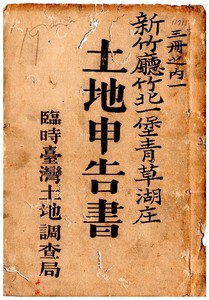 三冊之內一
新竹廳竹北一堡青草湖庄
土地申告書
臨時臺灣土地調查局